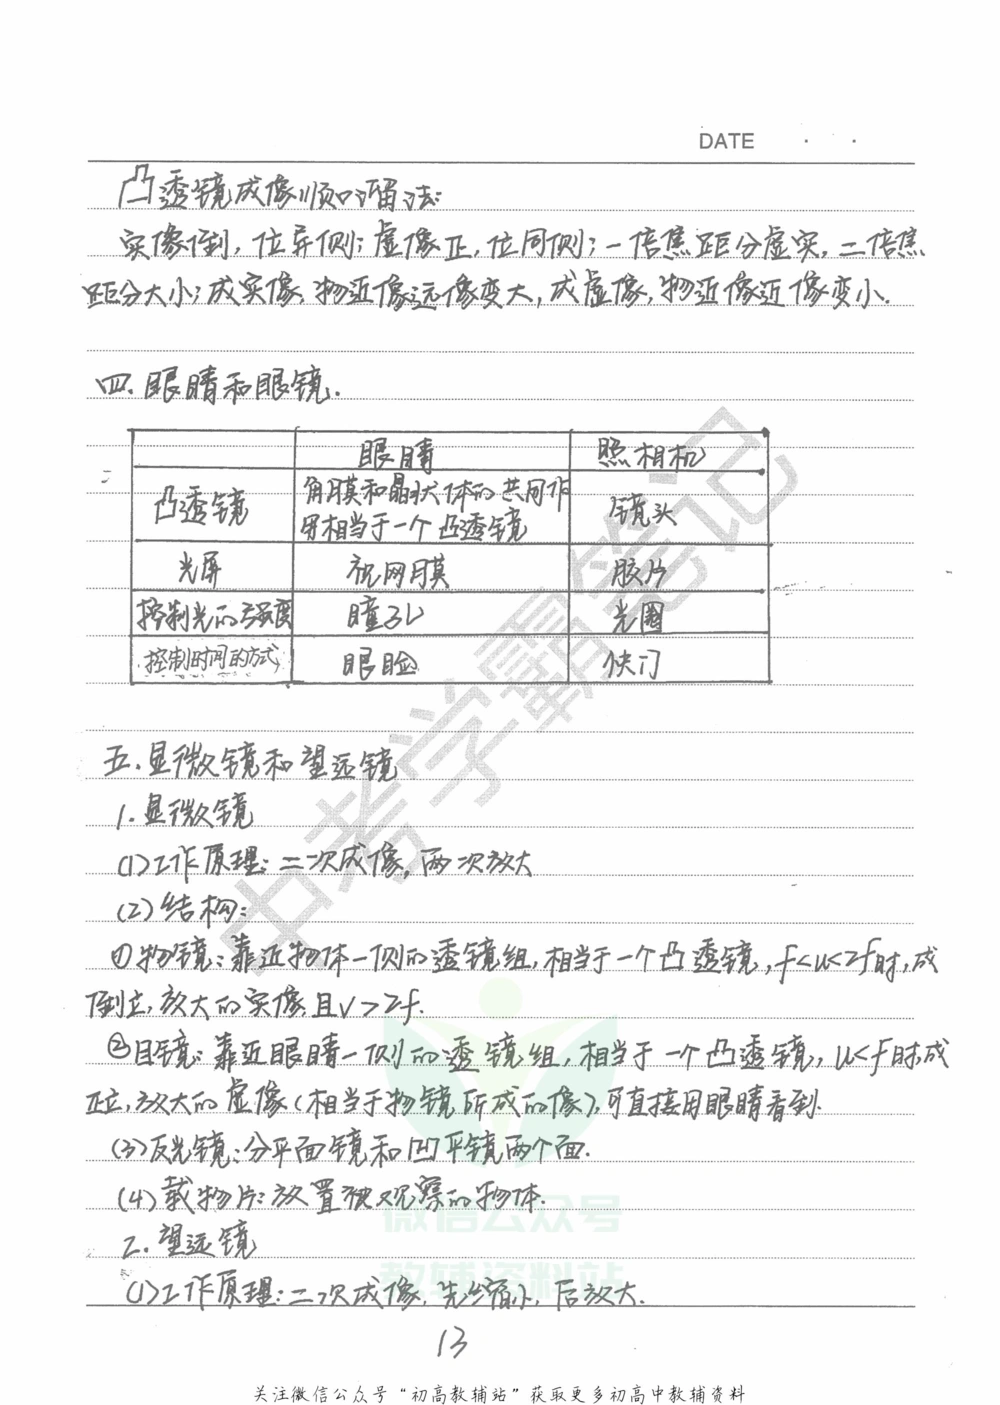 DATE . .
凸透镜成像顺口溜法:
实像倒,位异侧;虚像正,位同侧;一倍焦距分虚实,二倍焦
距分大小;成实像,物近像远像变大,成虚像,物近像近像变小.
四.眼睛和眼镜.
眼睛 照相机
凸透镜 角膜和晶状体的共同作用相当于一个凸透镜 镜头
光屏 视网膜 胶片
控制光的强度 瞳孔 光圈
控制时间的方式 眼睑 快门
五.显微镜和望远镜
1.显微镜
(1)工作原理:二次成像,两次放大
(2)结构:
①物镜:靠近物体一侧的透镜组,相当于一个凸透镜,f<u<2f时,成
倒立,放大的实像且v>2f.
②目镜:靠近眼睛一侧的透镜组,相当于一个凸透镜,u<f时,成
正立,放大的虚像(相当于物镜所成的像),可直接用眼睛看到.
(3)反光镜:分平面镜和凹平镜两个面.
(4)载物片:放置被观察的物体.
2.望远镜
(1)工作原理:二次成像,先缩小,后放大.
13
中考学霸笔记
微信公众号
教辅资料站
关注微信公众号“初高教辅站”获取更多初高中教辅资料